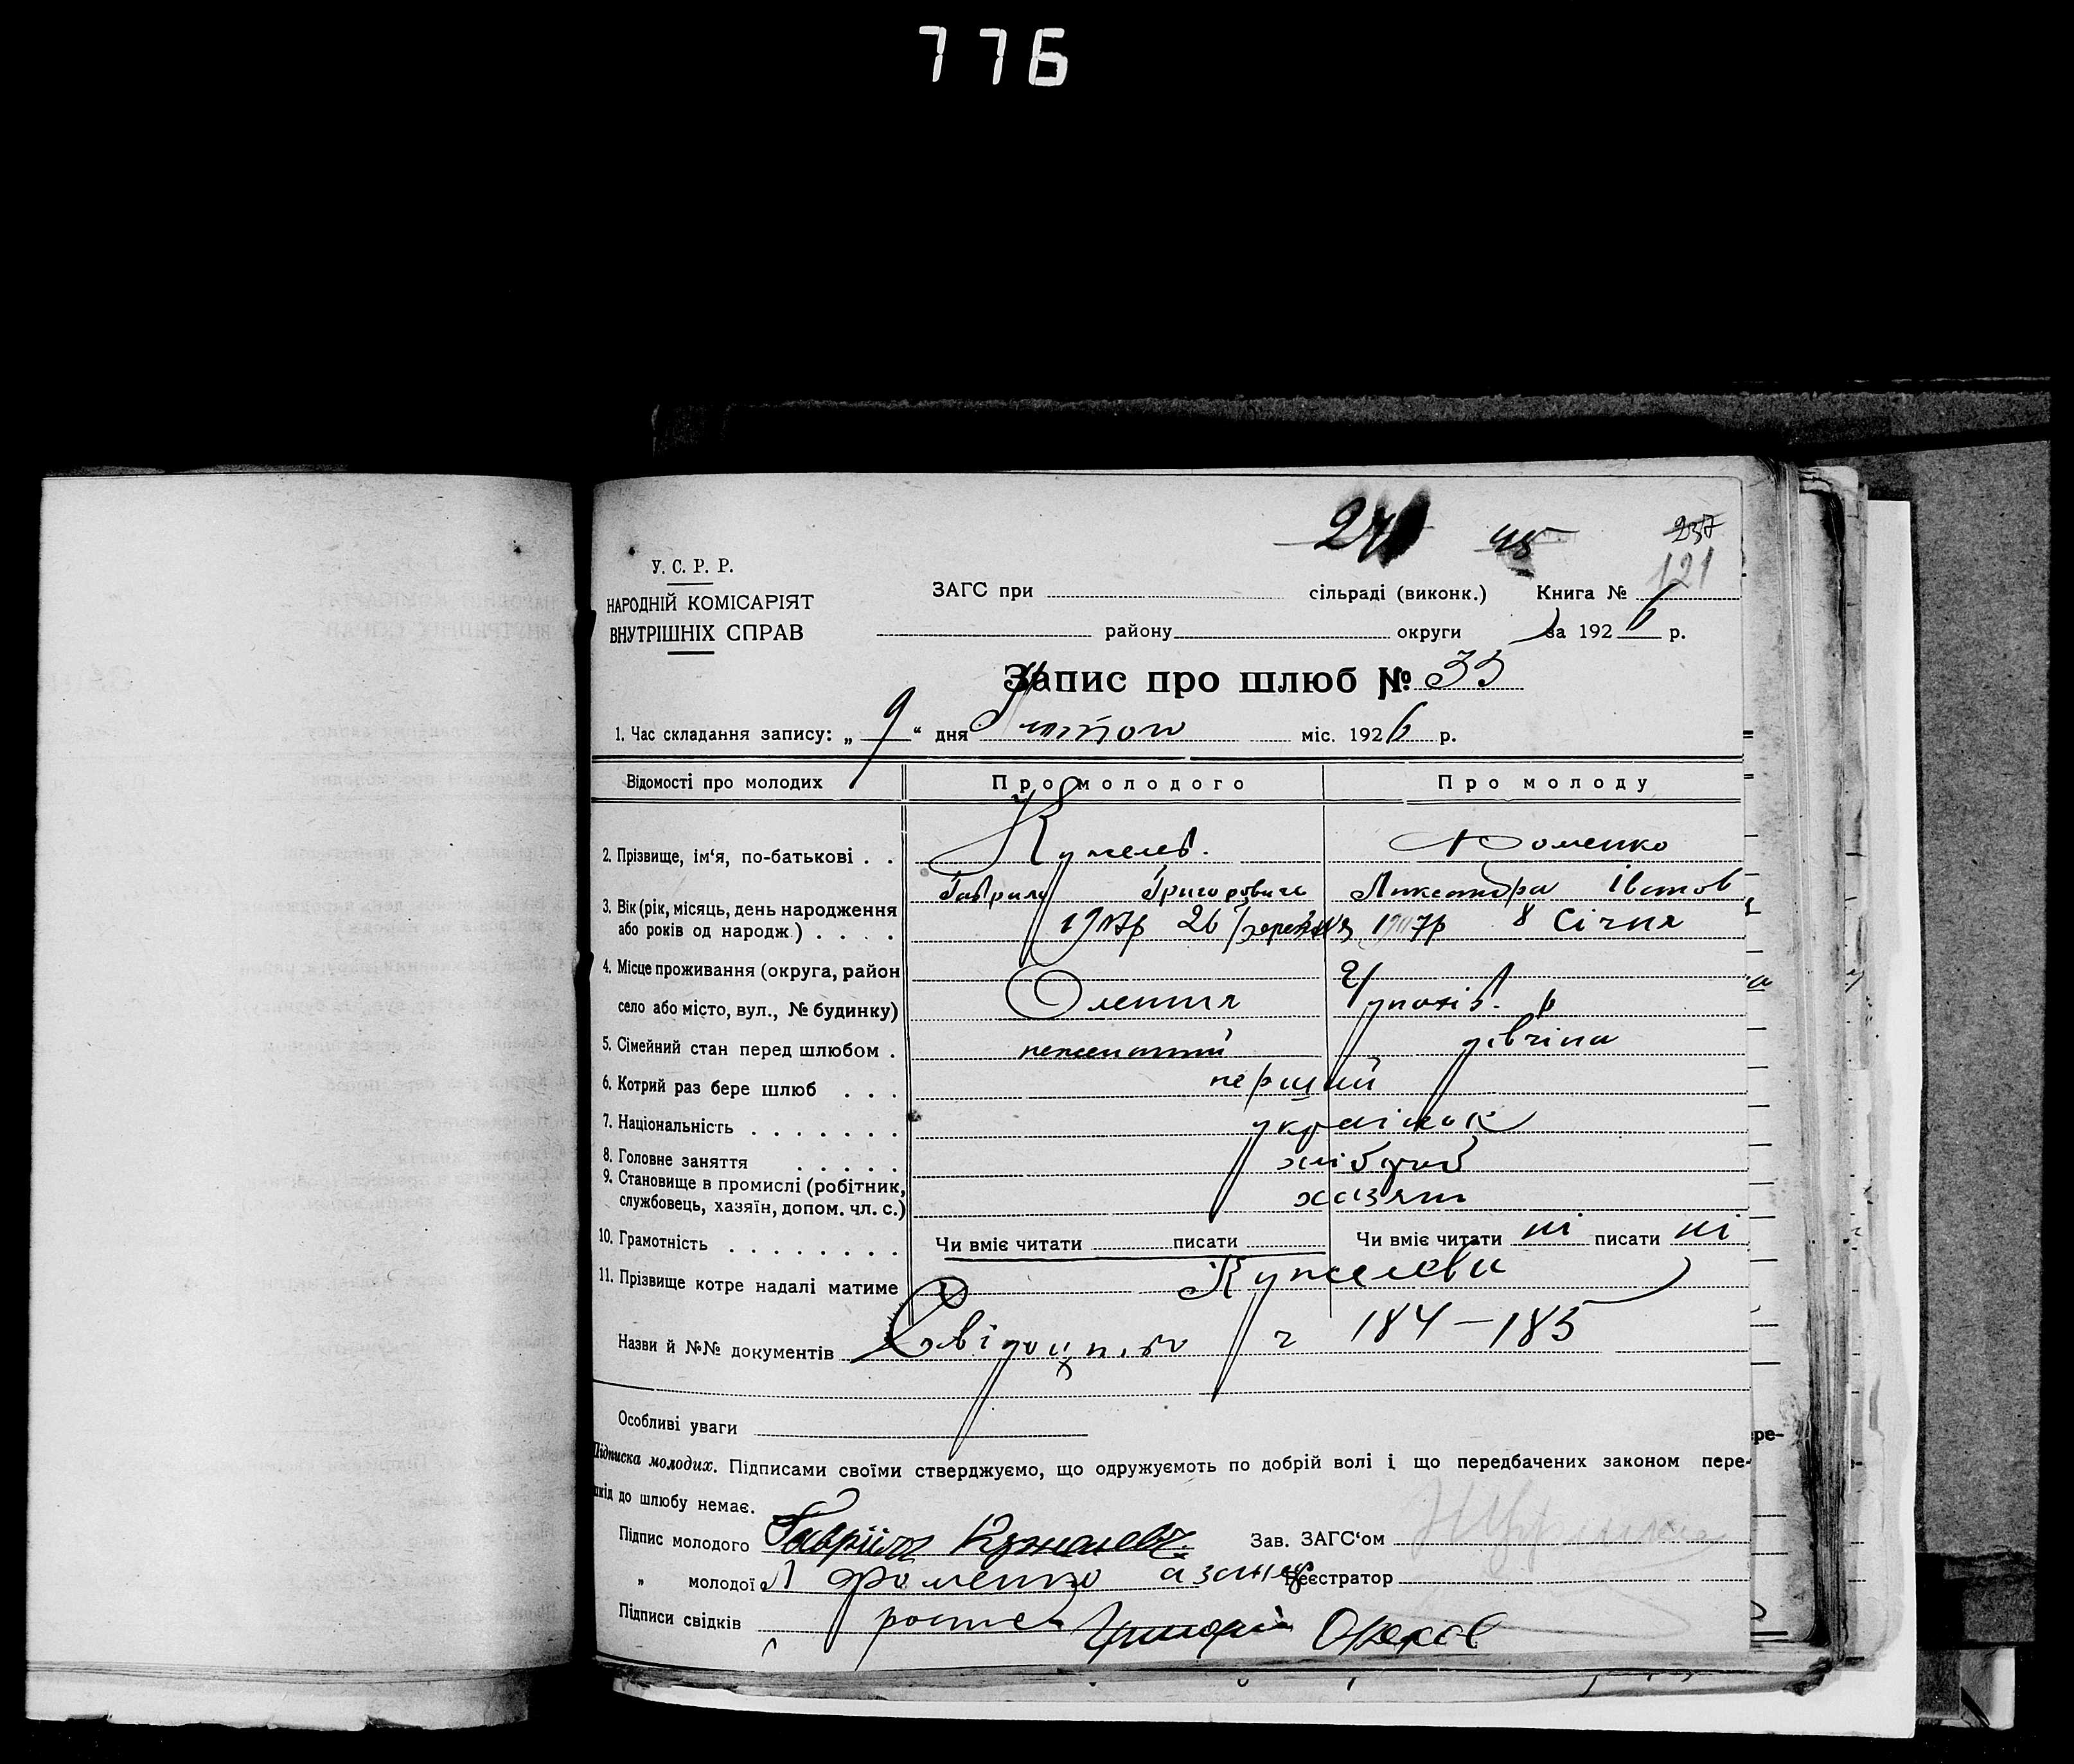 776
45 237
121
У. С. Р. Р.
НАРОДНІЙ КОМІСАРІЯТ
ВНУТРІШНІХ СПРАВ
ЗАГС при сільраді (виконк.) Книга №
району округи за 1926 р.
Запис про шлюб № 33
1. Час складання запису: „ 9 “ дня міс. 1926 р.
Відомості про молодих Про молодого Про молоду
2. Прізвище, ім‘я, по-батькові . . Кужелев. Фоменко
Гаврило Григорович Александра Іванов
3. Вік (рік, місяць, день народження
або років од народж.) . . . . 1907р 26 березня 1907р 8 Січня
4. Місце проживання (округа, район
село або місто, вул., № будинку)
5. Сімейний стан перед шлюбом . нежонатий дівчіна
6. Котрий раз бере шлюб . . . перший
7. Національність . . . . . . .
8. Головне заняття . . . . . хлібороб
9. Становище в промислі (робітник,
службовець, хазяїн, допом. чл. с.) хазяїн
10. Грамотність . . . . . . . . Чи вміє читати писати Чи вміє читати ні писати ні
11. Прізвище котре надалі матиме Кужелеви
Назви й №№ документів 184—185
Особливі уваги
Підписка молодих. Підписами своїми стверджуємо, що одружуємоть по добрій волі і що передбачених законом пере-
шкід до шлюбу немає.
Підпис молодого Гавриіл Кужелевъ Зав. ЗАГС‘ом
„ молодої Фоменко а за неї Реєстратор
Підписи свідків Григорий Орехов